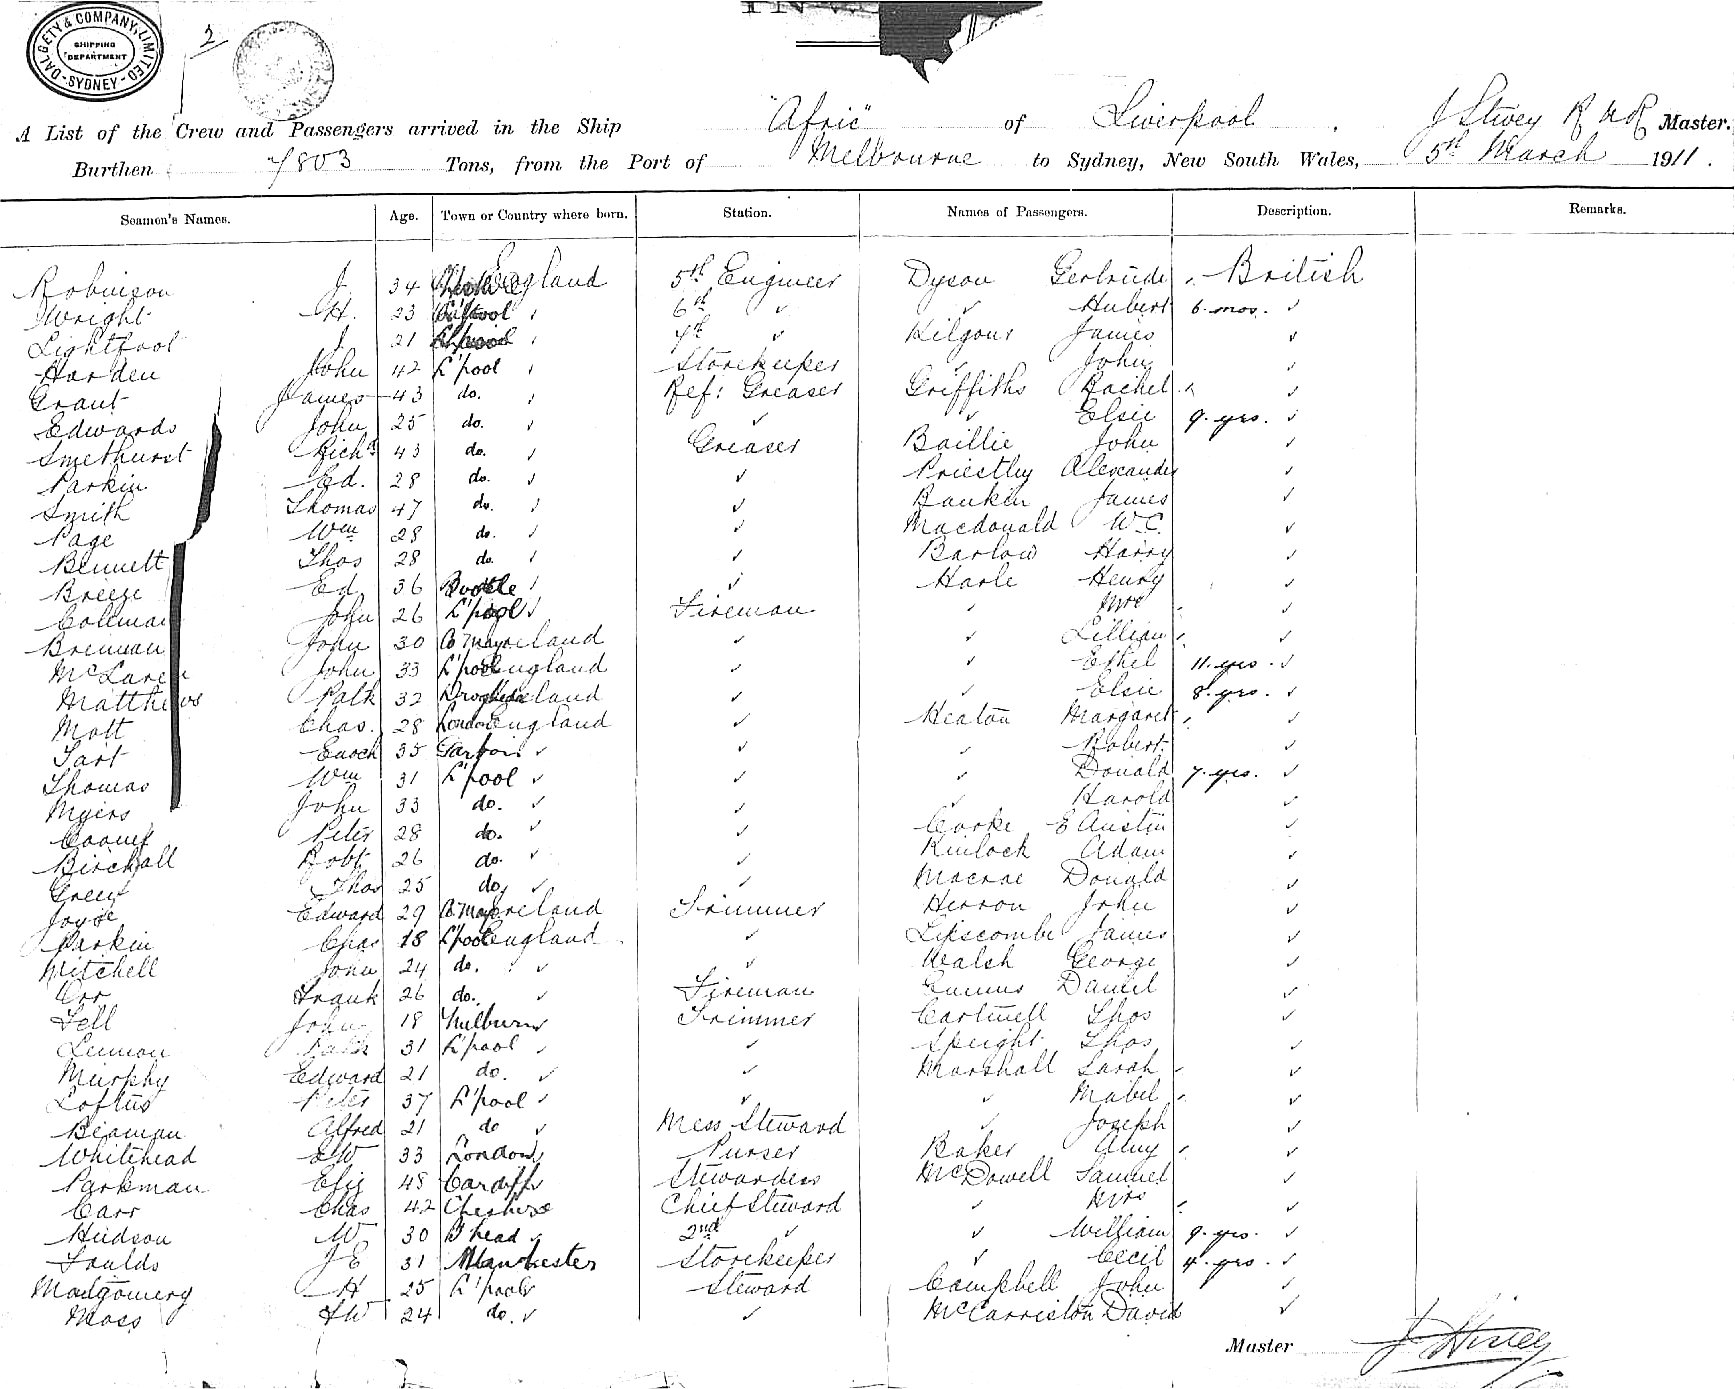 DALGETY & COMPANY, LIMITED
SHIPPING DEPARTMENT
SYDNEY
2
A List of the Crew and Passengers arrived in the Ship "Afric" of Liverpool, J Stivey R N R Master.
Burthen 7803 Tons, from the Port of Melbourne to Sydney, New South Wales, 5th March 1911.
Seamen's Names. Age. Town or Country where born. Station. Names of Passengers. Description. Remarks.
Robinson J. 34 England 5th Engineer Dyson Gertrude British
Wright H. 23 6th " " Hubert 6 mos. "
Lightfoot J 21 7th " Kilgour James "
Harden John 42 L'pool " Storekeeper " John "
Grant James 43 do. " Ref: Greaser Griffiths Rachel "
Edwards John 25 do. " " " Elsie 9. yrs. "
Smethurst Richd 43 do. " Greaser Baillie John "
Parkin Ed. 28 do. " " Priestley Alexander "
Smith Thomas 47 do. " " Rankin James "
Page Wm 28 do. " " Macdonald W.C. "
Bennett Thos 28 do. " " Barlow Harry "
Breeze Ed. 36 Bootle " " Harle Henry "
Collman John 26 L'pool " Fireman " Mrs "
Brennan John 30 Co Mayo Ireland " " Lillian "
McLaren John 33 L'pool England " " Ethel 11. yrs. "
Matthews Patk 32 Drogheda Ireland " " Elsie 8. yrs. "
Mott Chas. 28 London England " Heaton Margaret "
Tart Enoch 35 " " " Robert "
Thomas Wm 31 L'pool " " " Donald 7. yrs. "
Myers John 33 do. " " " Harold "
Peter 28 do. " " Corke E Austin "
Birchall Robt 26 do. " " Kinlock Adam "
Green Thos 25 do. " " Macrae Donald "
Joyce Edward 29 Co Mayo Ireland Trimmer Herron John "
Parkin Chas 18 L'pool England " Lipscombe James "
Mitchell John 24 do. " " Walsh George "
Orr Frank 26 do. " Fireman Daniel "
Fell John 18 " Trimmer Cartmell Thos "
Lennon Patk 31 L'pool " " Speight Thos "
Murphy Edward 21 do. " " Marshall Sarah "
Loftus Peter 37 L'pool " " " Mabel "
Beaman Alfred 21 do " Mess Steward " Joseph "
Whitehead EW 33 London " Purser Baker Amy "
Parkman Eliz 48 Cardiff " Stewardess McDowell Samuel "
Carr Chas 42 Cheshire Chief Steward " Mrs "
Hudson W. 30 B'head " 2nd " " William 9. yrs. "
Faulds JE 31 Manchester Storekeeper " Cecil 4. yrs. "
Montgomery H 25 L'pool " Steward Campbell John "
Moss FW 24 do. " " McCarriston David "
Master J Stivey